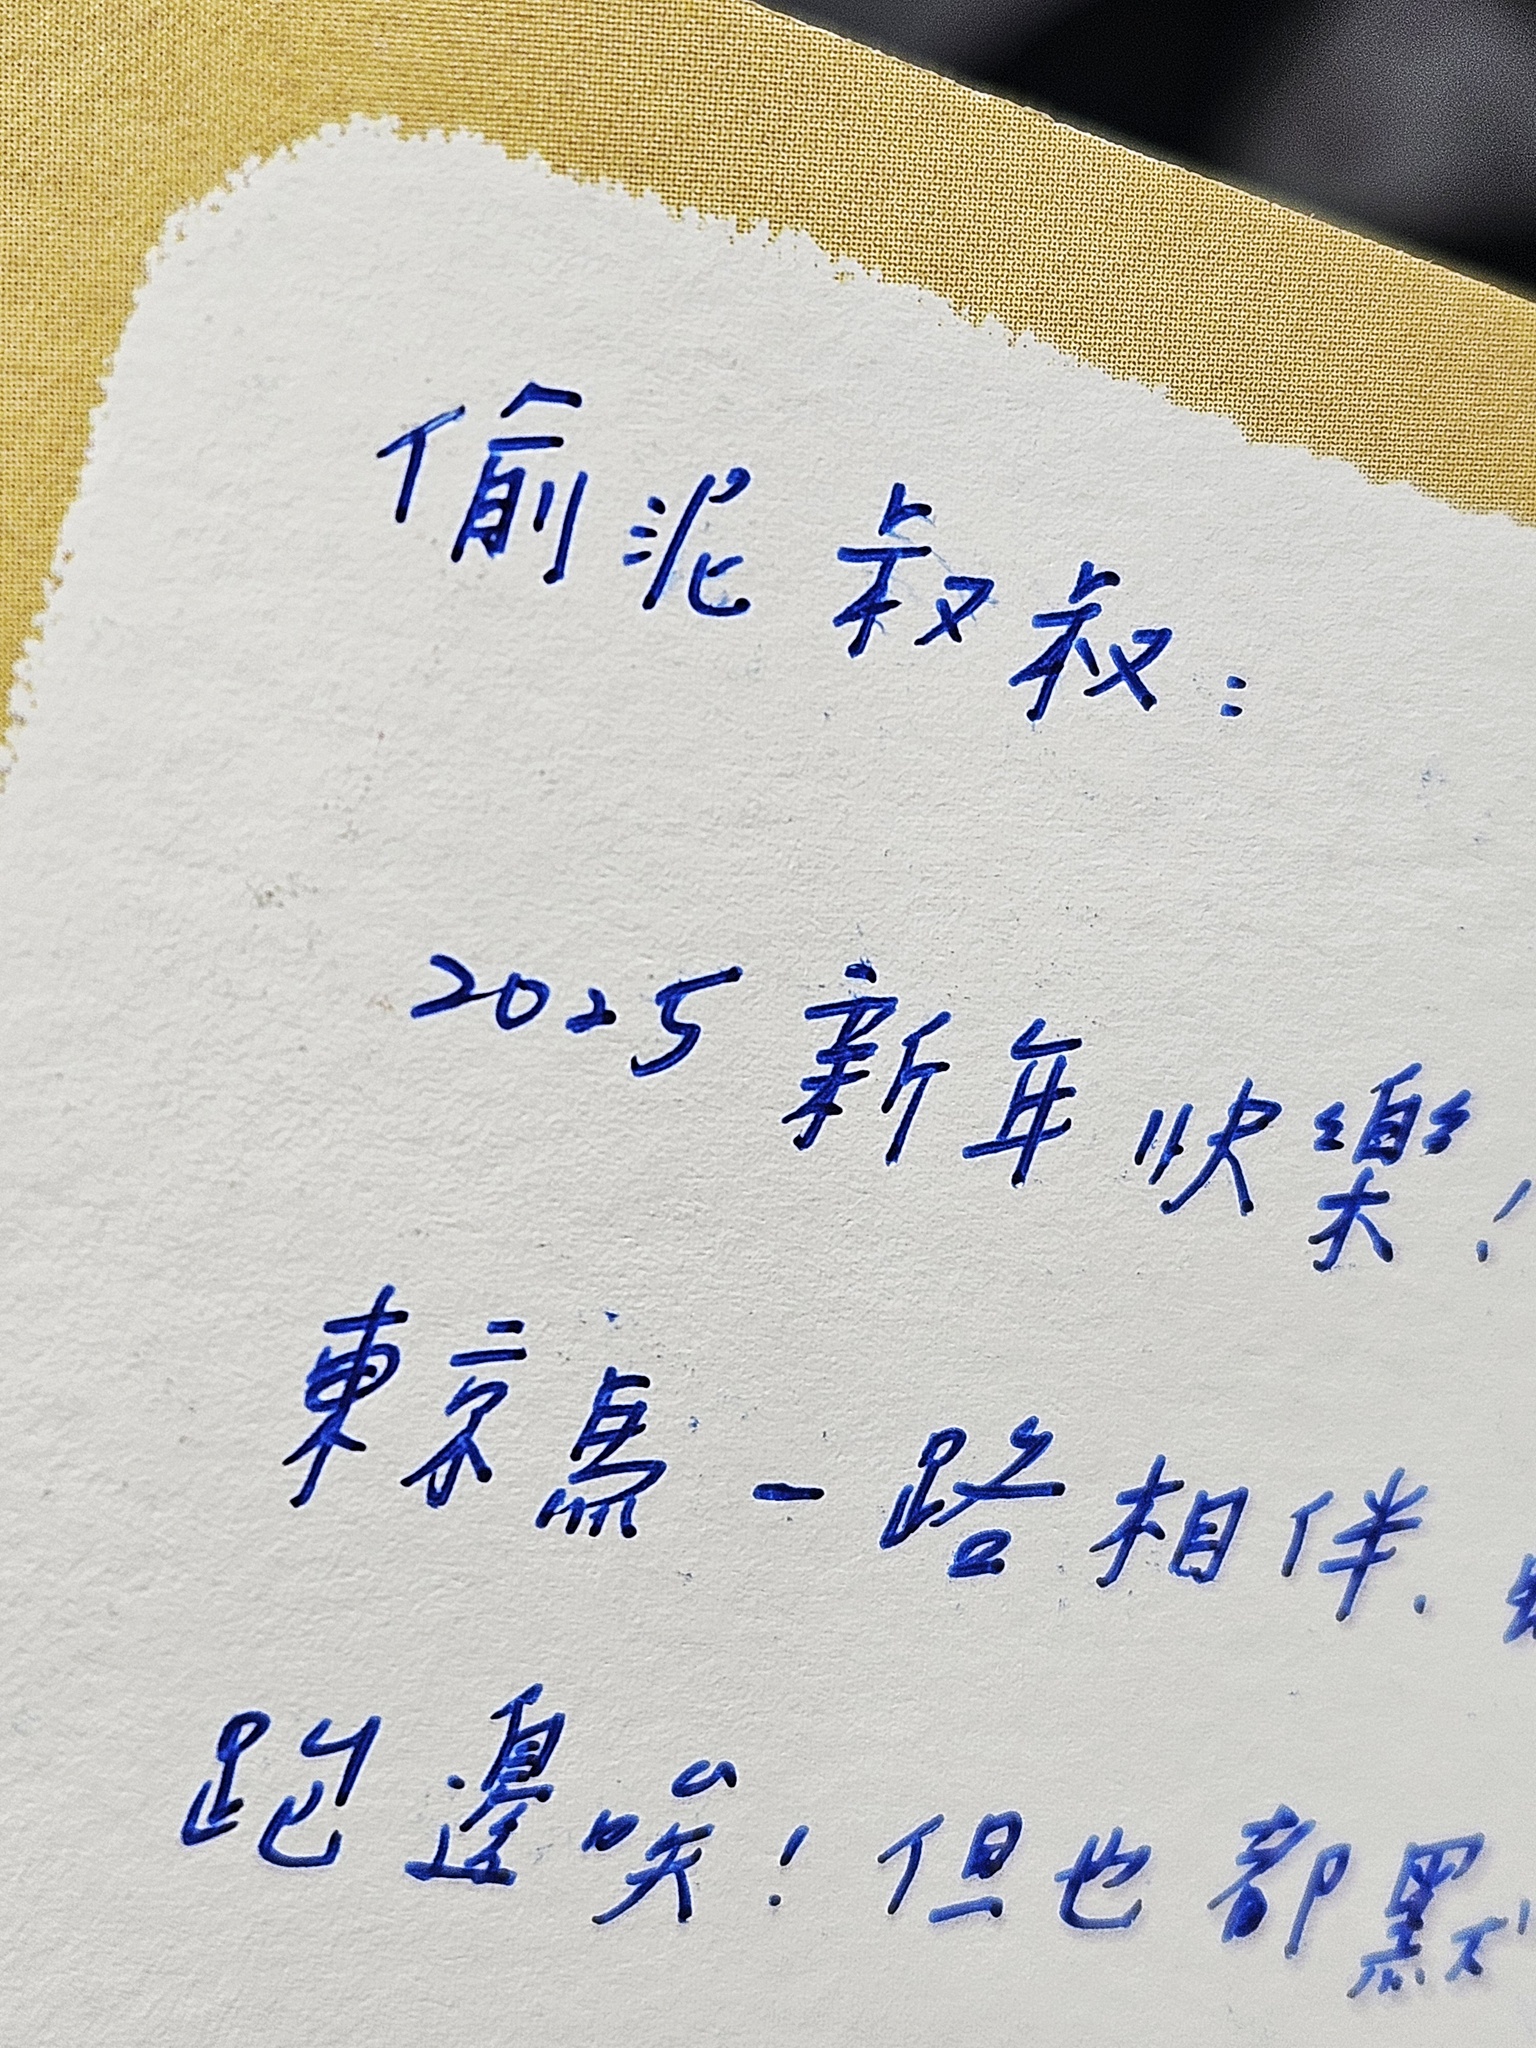 偷泥叔叔：
2025新年快樂！
東京馬一路相伴.
跑邊唉！但也都默